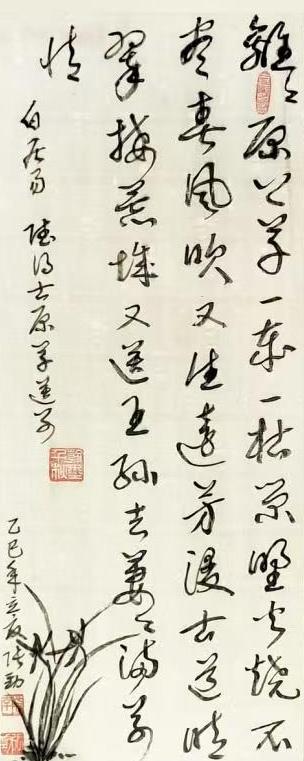 離〻原上草一歲一枯榮野火燒不
盡春風吹又生遠芳侵古道晴
翠接荒城又送王孫去萋〻滿別
情
白居易 賦得古原草送別
乙巳年立夏張